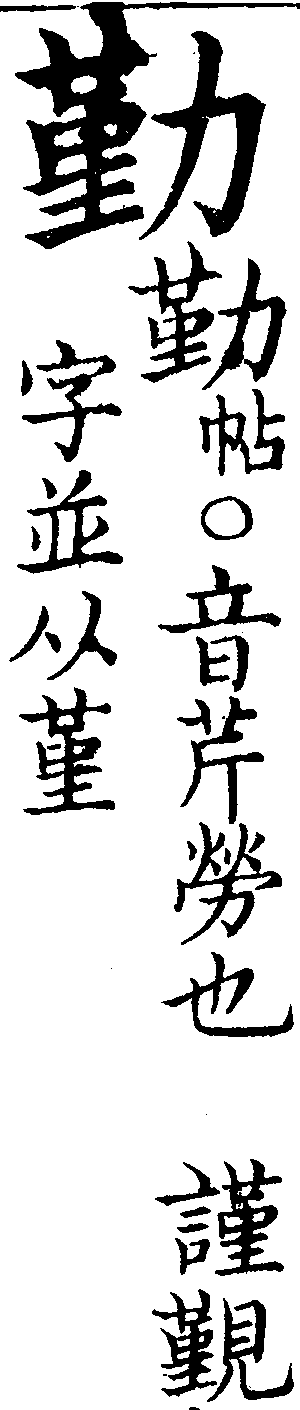 勤
勤帖○音芹勞也 謹覲
字並从堇